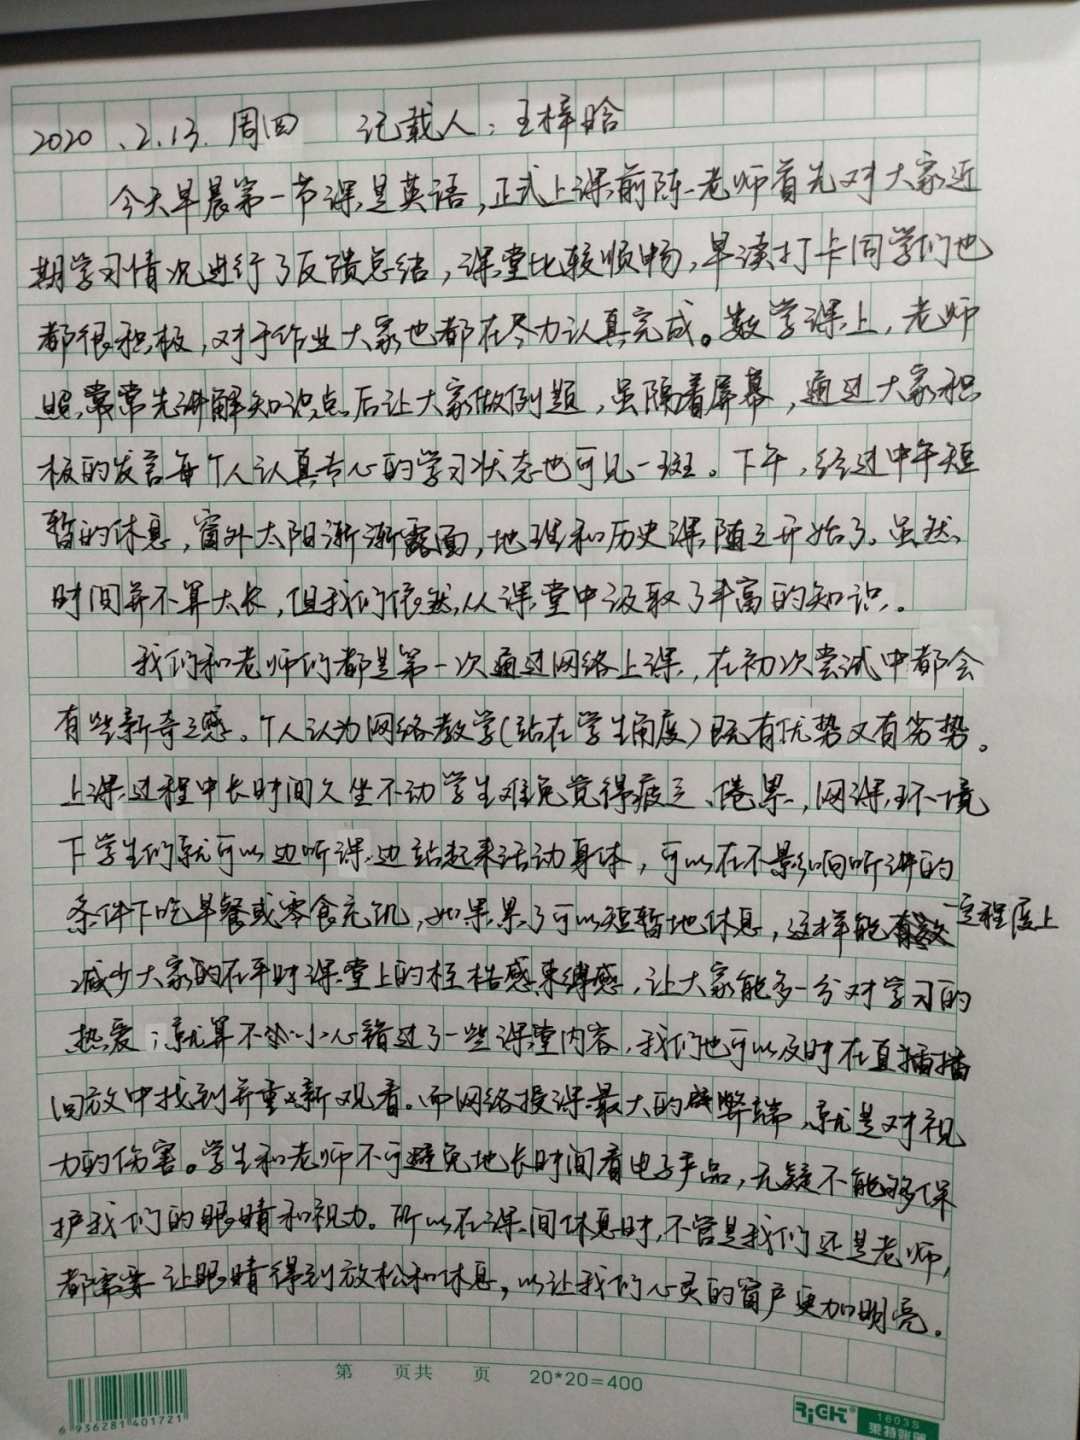 2020.2.13.周四 记载人：王梓晗
今天早晨第一节课是英语，正式上课前陈老师首先对大家近
期学习情况进行了反馈总结，课堂比较顺畅，早读打卡同学们也
都很积极，对于作业大家也都在尽力认真完成。数学课上，老师
照常先讲解知识点后让大家做例题，虽隔着屏幕，通过大家积
极的发言每个人认真专心的学习状态也可见一斑。下午，经过中午短
暂的休息，窗外太阳渐渐露面，地理和历史课随之开始了。虽然
时间并不算太长，但我们依然从课堂中汲取了丰富的知识。
我们和老师们都是第一次通过网络上课，在初次尝试中都会
有些新奇之感。个人认为网络教学（站在学生角度）既有优势又有劣势。
上课过程中长时间久坐不动学生难免觉得疲乏、倦累，网课环境
下学生们就可以边听课边站起来活动身体，可以在不影响听讲的
条件下吃早餐或零食充饥，如果累了可以短暂地休息，这样能一定程度上
减少大家的在平时课堂上的桎梏感束缚感，让大家能多一分对学习的
热爱；就算不小心错过了一些课堂内容，我们也可以及时在直播
回放中找到并重新观看。而网络授课最大的弊端，就是对视
力的伤害。学生和老师不可避免地长时间看电子产品，无疑不能够保
护我们的眼睛和视力。所以在课间休息时，不管是我们还是老师，
都需要让眼睛得到放松和休息，以让我们心灵的窗户更加明亮。
第 页共 页 20*20=400
6 936281 401721
RIGHT 1603S
莱特